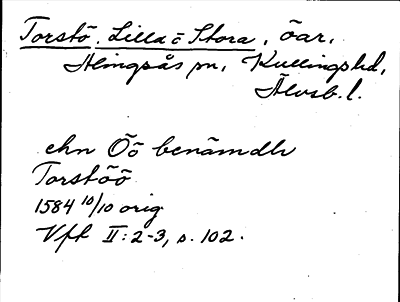 Torstö, Lilla o Stora, öar,
Alingsås sn, Kullings hd,
Älvsb. l.
ehn Öö benämdh
Torstöö
1584 10/10 orig
Vft II:2-3, s. 102.